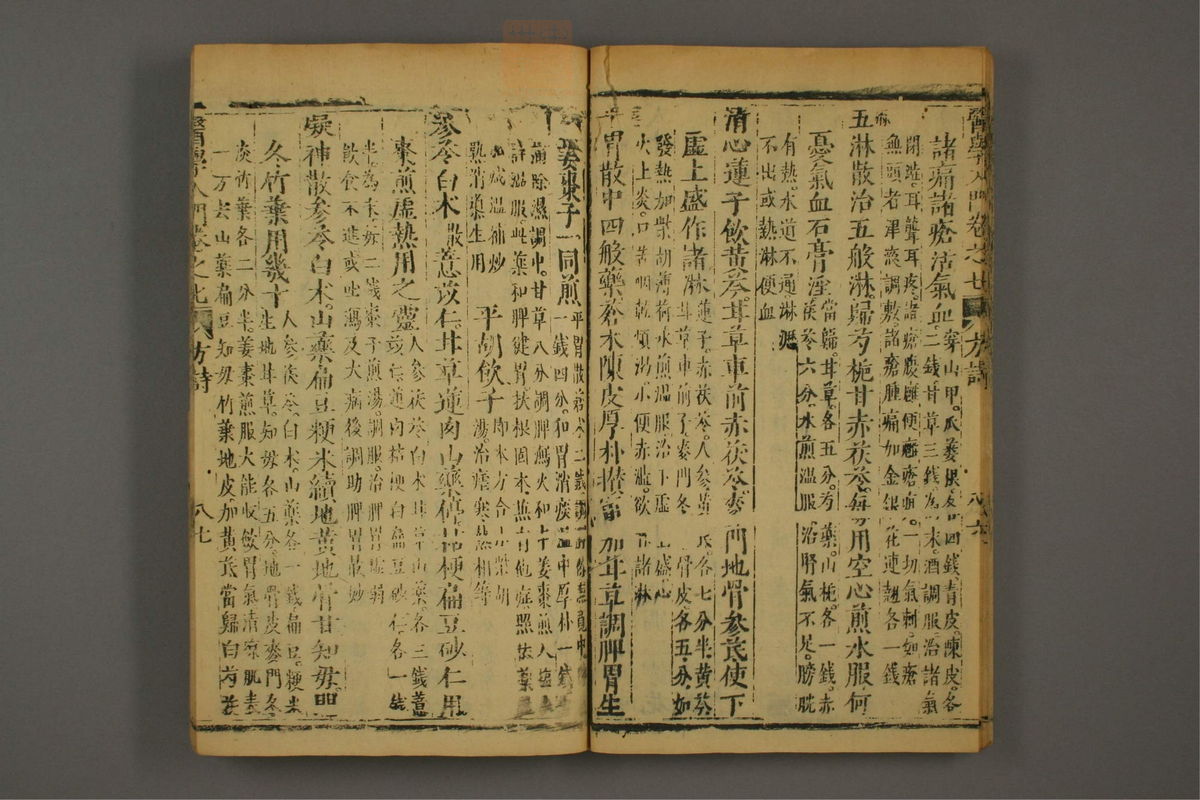 醫學入門卷之七 方詩 八六
諸痛諸瘡活氣血
穿山甲瓜蔞根各四錢青皮陳皮各
二錢甘草三錢為末酒調服治諸氣
閉澁耳聾耳疼諸瘡腹癰便癰瘡癤一切氣刺如瘡
無頭者津液調敷諸瘡腫痛加金銀花連翹各一錢
五淋散治五般淋歸芍梔甘赤茯苓每用空心煎水服何
憂氣血石膏淫
當歸甘草各五分芍藥山梔各一錢赤
茯苓六分水煎溫服治腎氣不足膀胱
有熱水道不通淋瀝
不出或熱淋便血
清心蓮子飲黃芩甘草車前赤茯苓麥門地骨參芪使下
虛上盛作諸淋
蓮子赤茯苓人參黃芪各七分半黃芩
甘草車前子麥門冬地骨皮各五分如
發熱加柴胡薄荷水煎溫服治下虛上盛心
火上炎口苦咽乾煩渴小便赤澁欲作諸淋
平胃散中四般藥蒼朮陳皮厚朴攢加甘草調脾胃生
薑棗子一同煎
平胃散蒼朮二錢
一錢四分和胃消痰溫中厚朴一錢
燥除濕調中甘草八分調脾瀉火和中薑棗煎入鹽
許溫服此藥和脾健胃扶根固本無有他症照依藥
減溫補炒
熟消導生用
平胡飲子
即本方合小柴胡
湯治瘧寒熱相等
參苓白朮散薏苡仁甘草蓮肉山藥桔梗扁豆砂仁用
棗煎虛熱用之靈
人參茯苓白朮甘草山藥各三錢薏
苡仁蓮肉桔梗白扁豆砂仁各一錢
半為末每二錢棗子煎湯調服治脾胃虛弱
飲食不進或吐瀉及大病後調助脾胃最妙
凝神散參苓白朮山藥扁豆粳米續地黃地骨甘知毋門
冬竹葉用幾十
人參茯苓白朮山藥各一錢扁豆粳米
生地甘草知毋各五分地骨皮麥門冬
淡竹葉各二分半薑棗煎服大能收歛胃氣清凉肌表
一方去山藥扁豆知毋竹葉地皮加黃芪當歸白芍
醫學入門卷之七 方詩 八七